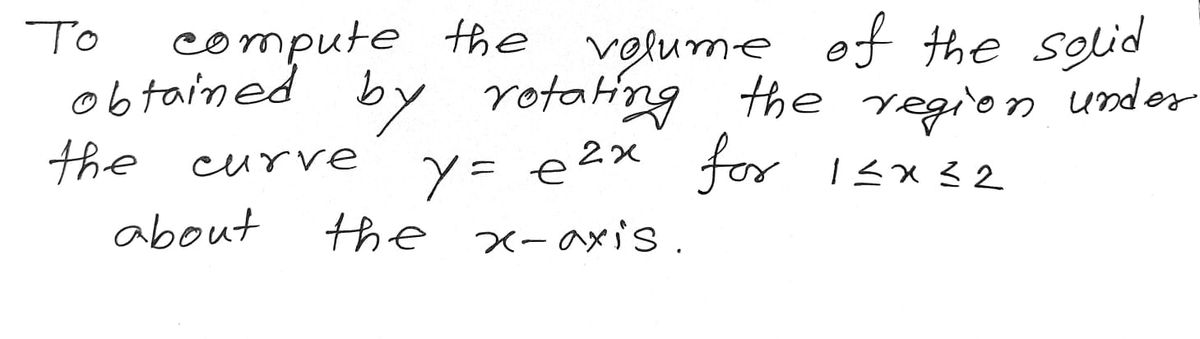 To compute the volume of the solid
obtained by rotating the region under
the curve y = e^{2x} for 1 ≤ x ≤ 2
about the x-axis.